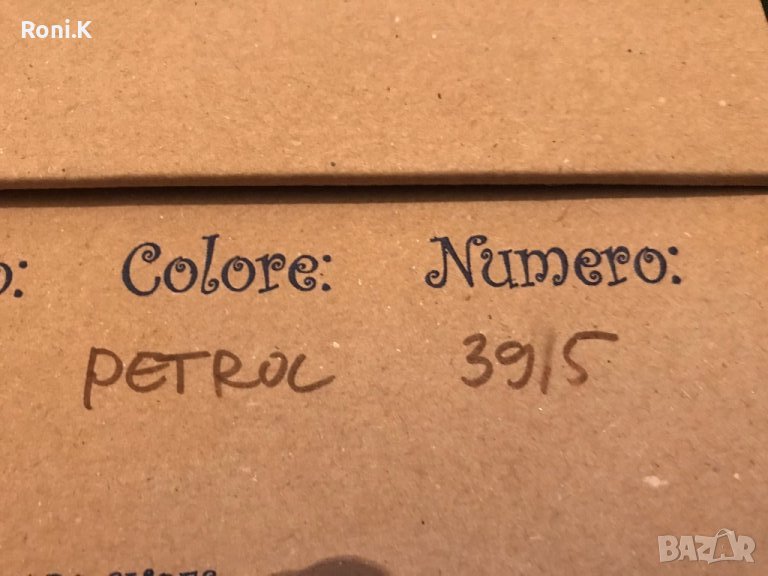 Roni.K
Colore: Numero:
PETROL 39/5
BAZAR